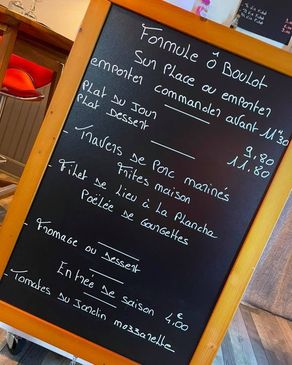 Formule Ô Boulot
Sur Place ou emporter
emporter commander avant 11h30
Plat Du Jour 9,80
Plat Dessert 11,80
- Travers de Porc marinés
Frites maison
- Filet de Lieu à la Plancha
Poêlée de Courgettes
- Fromage ou Dessert
Entrée de saison 4,00€
- Tomates Du Jardin mozzarella